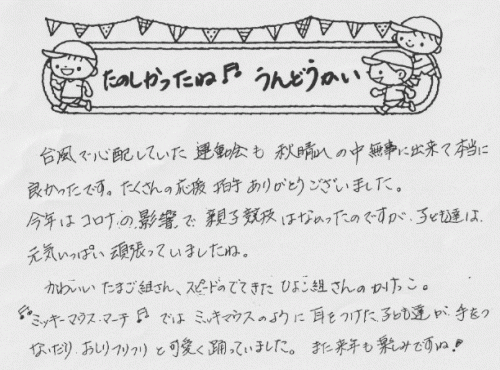 たのしかったね♬ うんどうかい
台風で心配していた 運動会も 秋晴れの中 無事に出来て本当に
良かったです。たくさんの応援 拍手 ありがとうございました。
今年は コロナの影響で 親子競技はなかったのですが、子ども達は、
元気いっぱい 頑張っていましたね。
かわいい たまご組さん、スピードのでてきた ひよこ組さんの かけっこ。
♬ミッキーマウス・マーチ♬ では ミッキーマウスのように 耳をつけた 子ども達が 手をつ
ないだり おしりフリフリ と可愛く 踊っていました。 また来年も 楽しみですね!